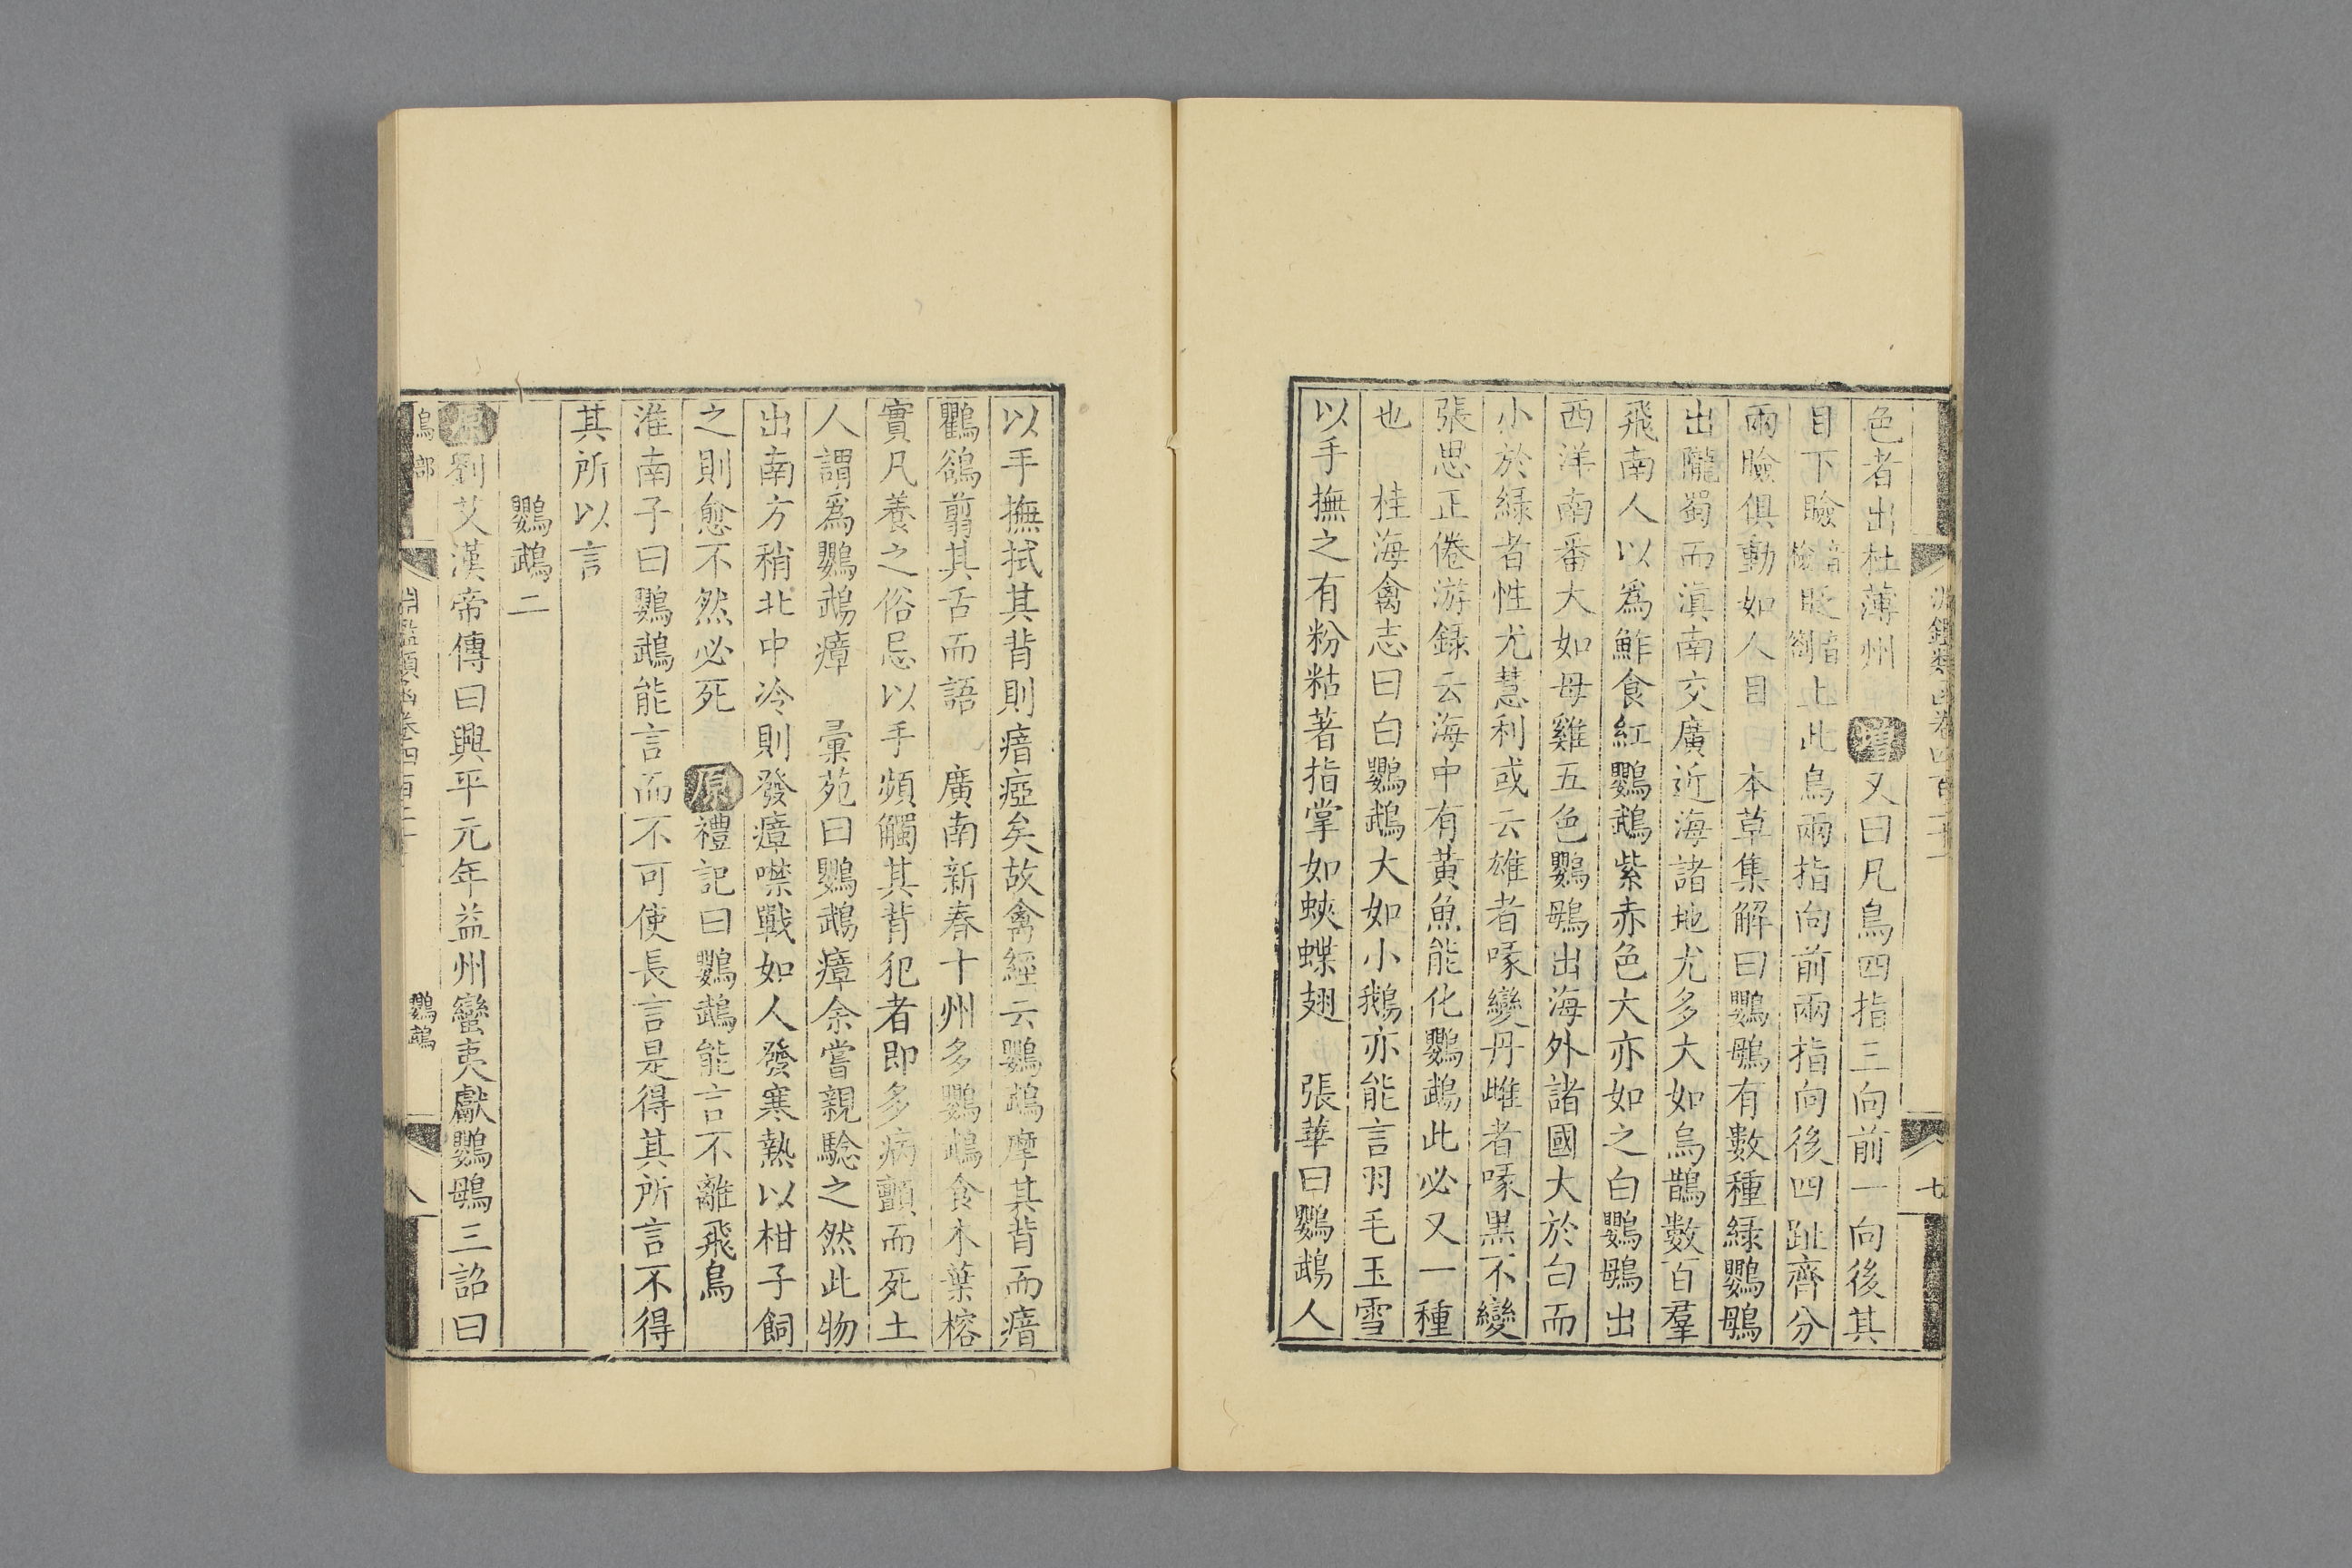 色者出杜薄州 增又曰凡鳥四指三向前一向後其
目下瞼眨上此鳥兩指向前兩指向後四趾齊分
兩瞼俱動如人目 本草集解曰鸚䳇有數種綠鸚䳇
出隴蜀而滇南交廣近海諸地尤多大如烏鵲數百羣
飛南人以爲鮓食紅鸚鵡紫赤色大亦如之白鸚䳇出
西洋南番大如母雞五色鸚䳇出海外諸國大於白而
小於綠者性尤慧利或云雄者喙變丹雌者喙黑不變
張思正倦游錄云海中有黃魚能化鸚鵡此必又一種
也 桂海禽志曰白鸚鵡大如小鵝亦能言羽毛玉雪
以手撫之有粉粘著指掌如蛺蝶翅 張華曰鸚鵡人
淵鑑類函卷四百二十一
七
以手撫拭其背則瘖瘂矣故禽經云鸚鵡摩其背而瘖
鸜鵒剪其舌而語 廣南新春十州多鸚鵡食木葉榕
實凡養之俗忌以手頻觸其背犯者即多病顫而死土
人謂爲鸚鵡瘴 彙苑曰鸚鵡瘴余嘗親驗之然此物
出南方稍北中冷則發瘴噤戰如人發寒熱以柑子飼
之則愈不然必死 原禮記曰鸚鵡能言不離飛鳥
淮南子曰鸚鵡能言而不可使長言是得其所言不得
其所以言
鸚鵡二
原劉艾漢帝傳曰興平元年益州蠻夷獻鸚䳇三詔曰
鳥部
淵鑑類函卷四百二十一
鸚鵡
八